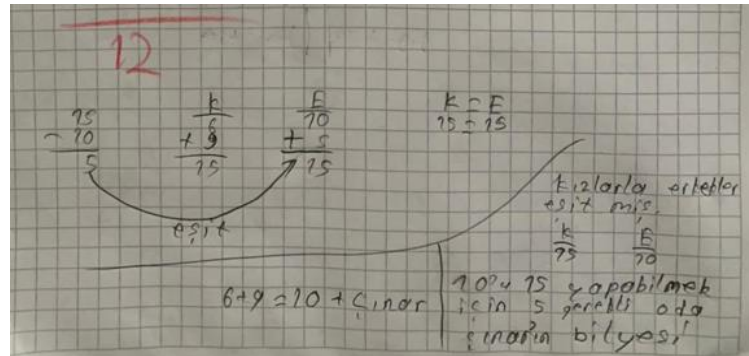 12
15
- 10
5
K
6
+ 9
15
E
10
+ 5
15
K = E
15 = 15
eşit
Kızlarla erkekler
eşit miş.
K E
15 10
6+9=10+Çınar
10'u 15 yapabilmek
için 5 gerekli oda
çınarın bilyesi